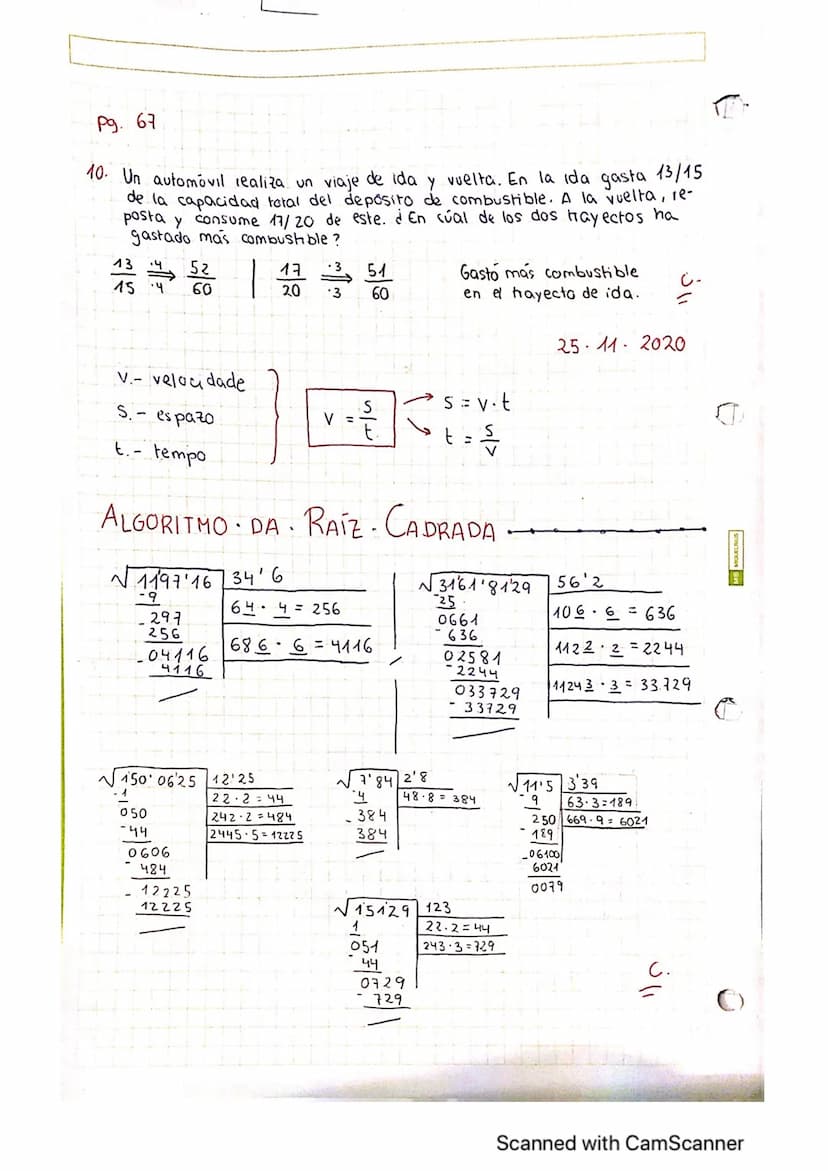 Pg. 67
10. Un automóvil realiza un viaje de ida y vuelta. En la ida gasta 13/15
de la capacidad total del depósito de combustible. A la vuelta, re-
posta y consume 17/20 de este. ¿En cúal de los dos trayectos ha
gastado más combustible?
13/15 ·4/·4 ⇒ 52/60 | 17/20 ·3/·3 ⇒ 51/60
Gastó más combustible
en el trayecto de ida.
C.
25·11·2020
V.- velocidade
S.- espazo
t.- tempo
v = s/t
s = v·t
t = s/v
ALGORITMO·DA·RAÍZ·CADRADA
√1197'16 34'6
-9 64·4=256
-297 686·6=4116
256
-04116
4116
√3161'8129 56'2
-25 106·6=636
0661 1122·2=2244
-636 11243·3=33.729
02581
-2244
033729
-33729
√150'0625 12'25
-1 22·2=44
050 242·2=484
-44 2445·5=12225
0606
-484
-12225
12225
√7'84 2'8
-4 48·8=384
-384
384
√11'5 3'39
9 63·3=189
250 669·9=6021
-189
-06100
6021
0079
√15129 123
1 22·2=44
051 243·3=729
-44
0729
-729
C.
MIQUELRIUS
Scanned with CamScanner